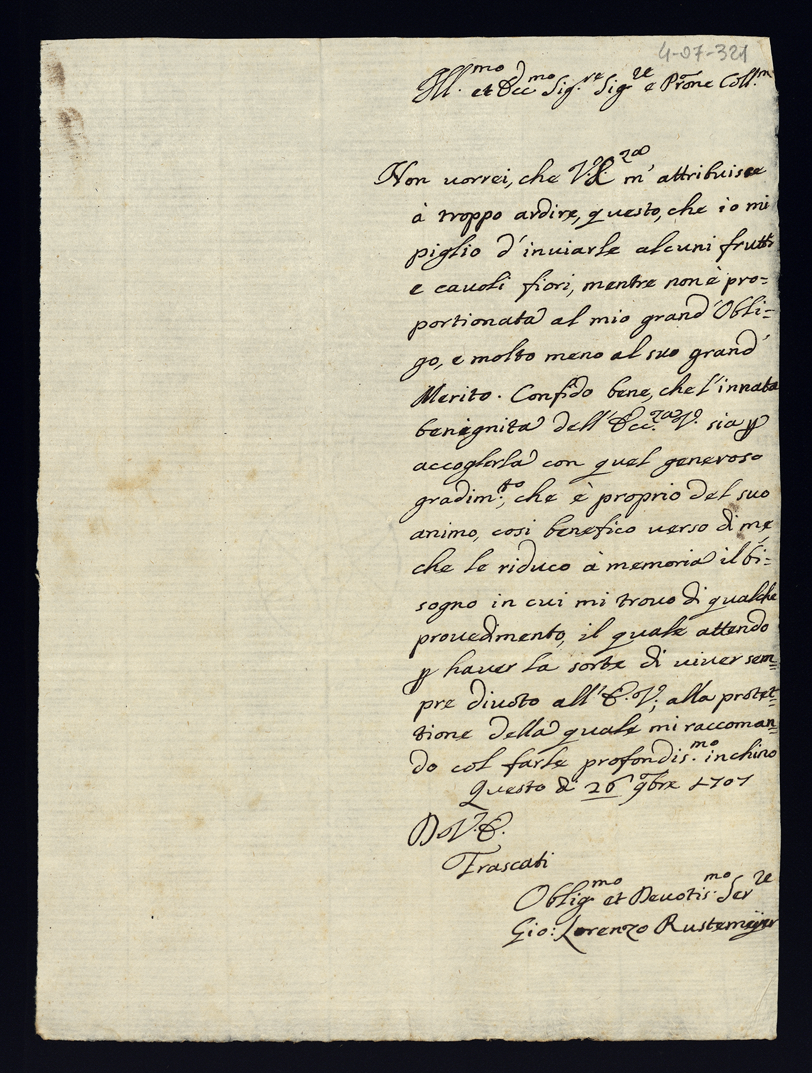 4-07-321
Ill.mo et Ecc.mo Sig.re Sig.re e Prone Coll.mo
Non uorrei, che V. E.za m'attribuisce
à troppo ardire, questo, che io mi
piglio d'inuiarle alcuni frutti
e cauoli fiori, mentre non è pro=
portionata al mio grand'Obli=
go, e molto meno al suo grand'
Merito. Confido bene, che l'innata
benignita dell'Ecc.za V. sia p
accoglerla con quel generoso
gradim.to, che è proprio del suo
animo, cosi benefico uerso di me
che le riduco à memoria il bi=
sogno in cui mi trouo di qualche
prouedimento, il quale attendo
p hauer la sorte di uiuer sem=
pre diuoto all'E. V., alla protet=
tione della quale mi raccoman=
do col farle profondis.mo inchino
Questo di 26 9bre 1707
Di V. E.
Frascati
Oblig.mo et Deuotis.mo Ser.re
Gio: Lorenzo Rustemeijer